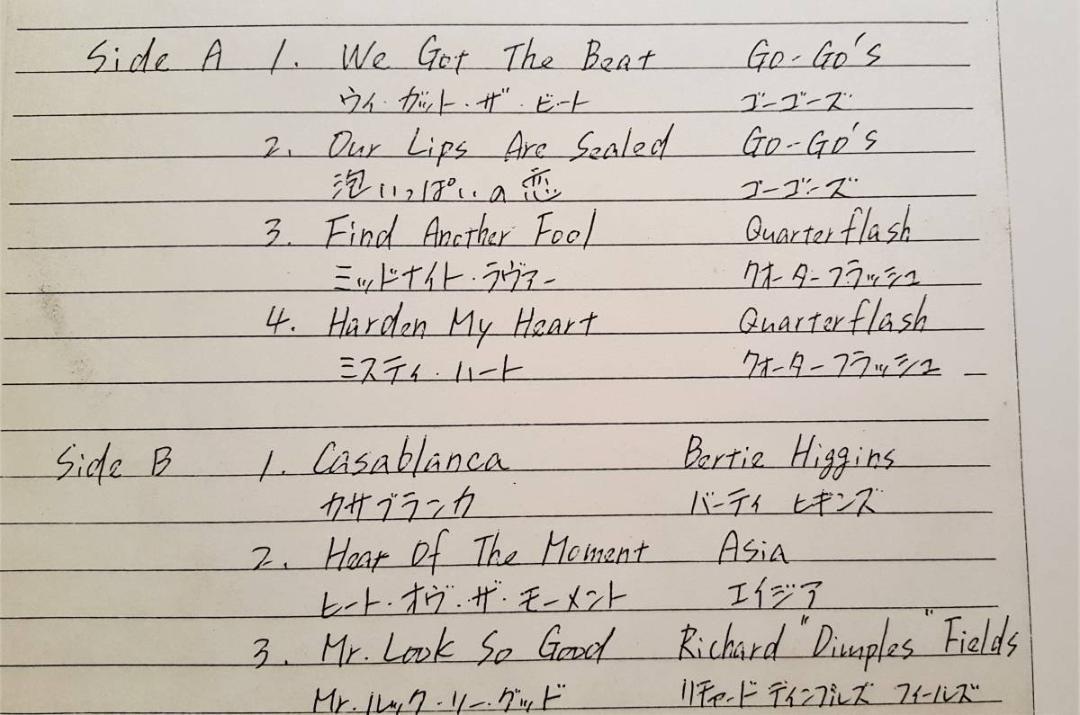 Side A 1. We Got The Beat Go-Go's
ウィ・ガット・ザ・ビート ゴーゴーズ
2. Our Lips Are Sealed Go-Go's
泡いっぱいの恋 ゴーゴーズ
3. Find Another Fool Quarterflash
ミッドナイト・ラヴァー クォーターフラッシュ
4. Harden My Heart Quarterflash
ミスティ・ハート クォーターフラッシュ
Side B 1. Casablanca Bertie Higgins
カサブランカ バーティ ヒギンズ
2. Hear Of The Moment Asia
ヒート・オヴ・ザ・モーメント エイジア
3. Mr. Look So Good Richard "Dimples" Fields
Mr.ルック・ソー・グッド リチャード ディンプルズ フィールズ